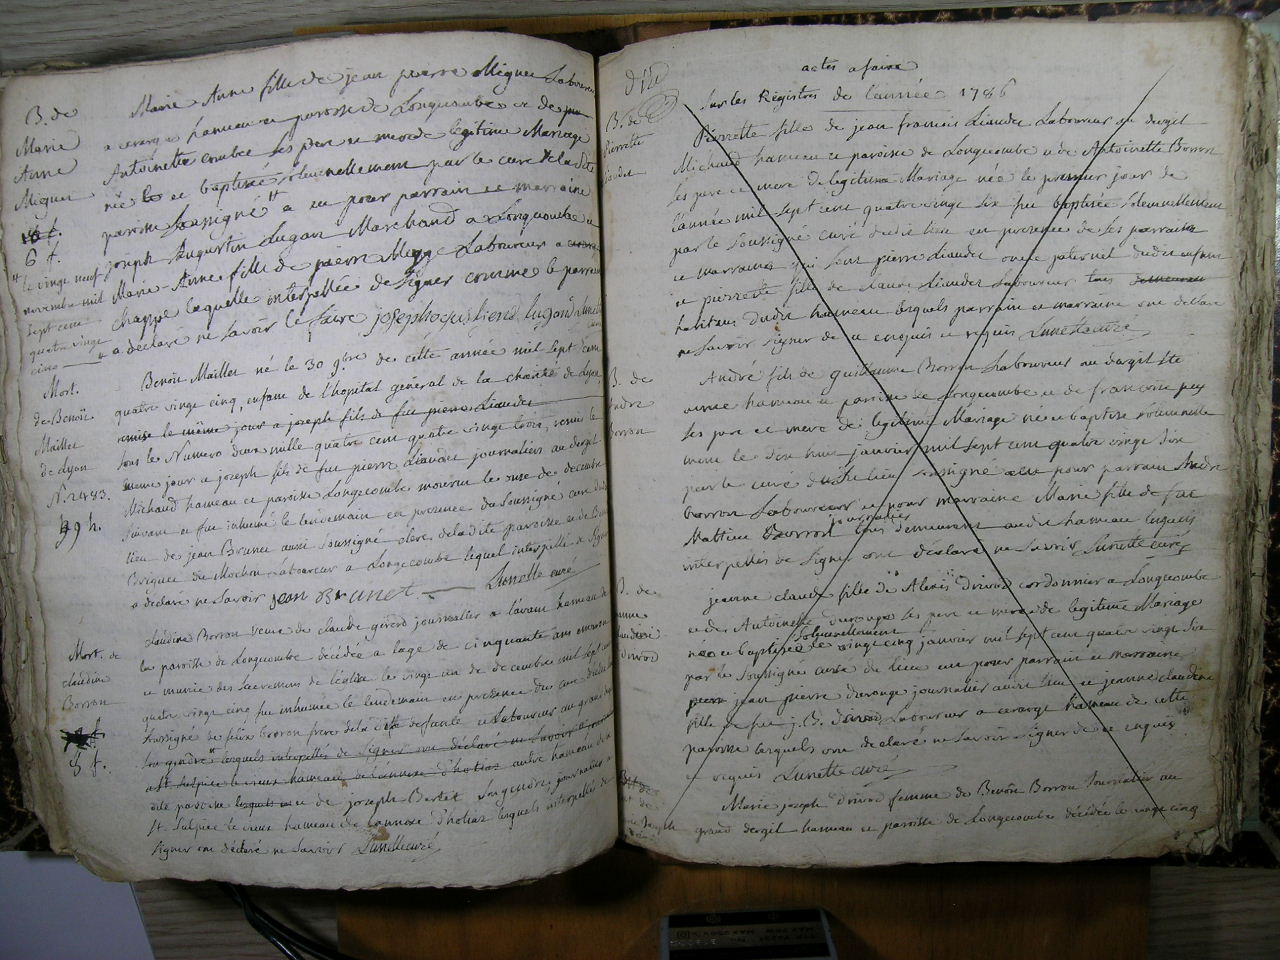 B. de
Marie
Anne
Miguet
6 f.
le vingt neuf
novembre mil
sept cent
quatre vingt
cinq
Marie Anne fille de jean pierre Miguet Laboureur
a cerarge hameau et paroisse de Longecombe et de
Antoinette combet ses pere et mere de legitime Mariage
née et baptisée solennellement par le curé de la dite
paroisse soussigné a eu pour parrain et marraine
joseph Augustin Lugan Marchand a Longecombe et
Marie-Anne fille de pierre Laboureur a
chappe laquelle interpellée de signer comme le parrain
a déclaré ne savoir le faire
Mort.
de Benoît
Maillet
de Lyon
N.° 2483.
Benoît Maillet né le 30 9bre de cette année mil sept cent
quatre vingt cinq, enfant de l'hopital general de la charité de Lyon,
remise le même jour a joseph fils de feu pierre Liaudet
sous le Numero deux mille quatre cent quatre vingt trois, remis le
meme jour a joseph fils de feu pierre Liaudet journalier au dergit
Michaud hameau et paroisse Longecombe mourut le onze de decembre
suivant et fut inhumé le lendemain en presence du soussigné curé dudit
lieu de jean Brunet aussi soussigné clerc de ladite paroisse et de
du Mochon Laboureur a Longecombe lequel interpellé de signer
a déclaré ne savoir jean Brunet Lunette curé
Mort. de
claudine
Borron
5 f.
claudine Borron veuve de claude girord journalier a l'avant hameau de
la paroisse de Longecombe décédée a l'age de cinquante ans environ
et munie des sacremens de l'église le vingt un de decembre mil sept cent
quatre vingt cinq fut inhumée le lendemain en presence du curé
soussigné de felix borron frere de la dite defunte et Laboureur au grand
son gendre lesquels interpellés de signer ont déclaré ne savoir
St. sulpice le vieux hameau de l'annexe d'hotiaz autre hameau de
dite paroisse et de joseph Bertet son gendre, journalier a
St. Sulpice le vieux hameau de l'annexe d'hotiaz lesquels interpellés de
signer ont déclaré ne savoir Lunette curé
actes a faire
sur les Registres de l'année 1786
B. de
Pierrette
Liaudet
Pierrette fille de jean francois Liaudet Laboureur au dergit
Michaud hameau et paroisse de Longecombe et de Antoinette Borron
ses pere et mere de legitime Mariage née le premier jour de
l'année mil sept cent quatre vingt six fut baptisée solennellement
par le soussigné curé dudit lieu en presence de ses parrain
et marraine qui sont pierre Liaudet oncle paternel dudit enfant
et pierrette fille de claude Liaudet Laboureur tous
habitans dudit hameau lesquels parrain et marraine ont déclaré
ne savoir signer de ce enquis et requis Lunette curé
B. de
Andre
Borron
André fils de guillaume Borron Laboureur au dergit
hameau et paroisse de Longecombe et de francoise
ses pere et mere de legitime Mariage né et baptisé solennelle
ment le dix huit janvier mil sept cent quatre vingt six
par le curé dudit lieu soussigné a eu pour parrain André
borron Laboureur et pour marraine Marie fille de feu
Mathieu Borron journaliers tous demeurant audit hameau lesquels
interpellés de signer ont déclaré ne savoir Lunette curé
B. de
jeanne
claudine
Drivod
jeanne claude fille d'Alexis Drivod cordonnier a Longecombe
et des Antoinette ses pere et mere de legitime Mariage
née et baptisée solennellement le vingt cinq janvier mil sept cent quatre vingt six
par le soussigné curé du lieu eut pour parrain et marraine
jean pierre journalier audit lieu et jeanne claudine
fille de feu j. B. Drivod Laboureur a cerarge hameau de cette
paroisse lesquels ont déclaré ne savoir signer de ce enquis
et requis Lunette curé
Marie joseph Drivod femme de Benoît Borron Journalier au
grand dergit hameau et paroisse de Longecombe décédée le vingt cinq